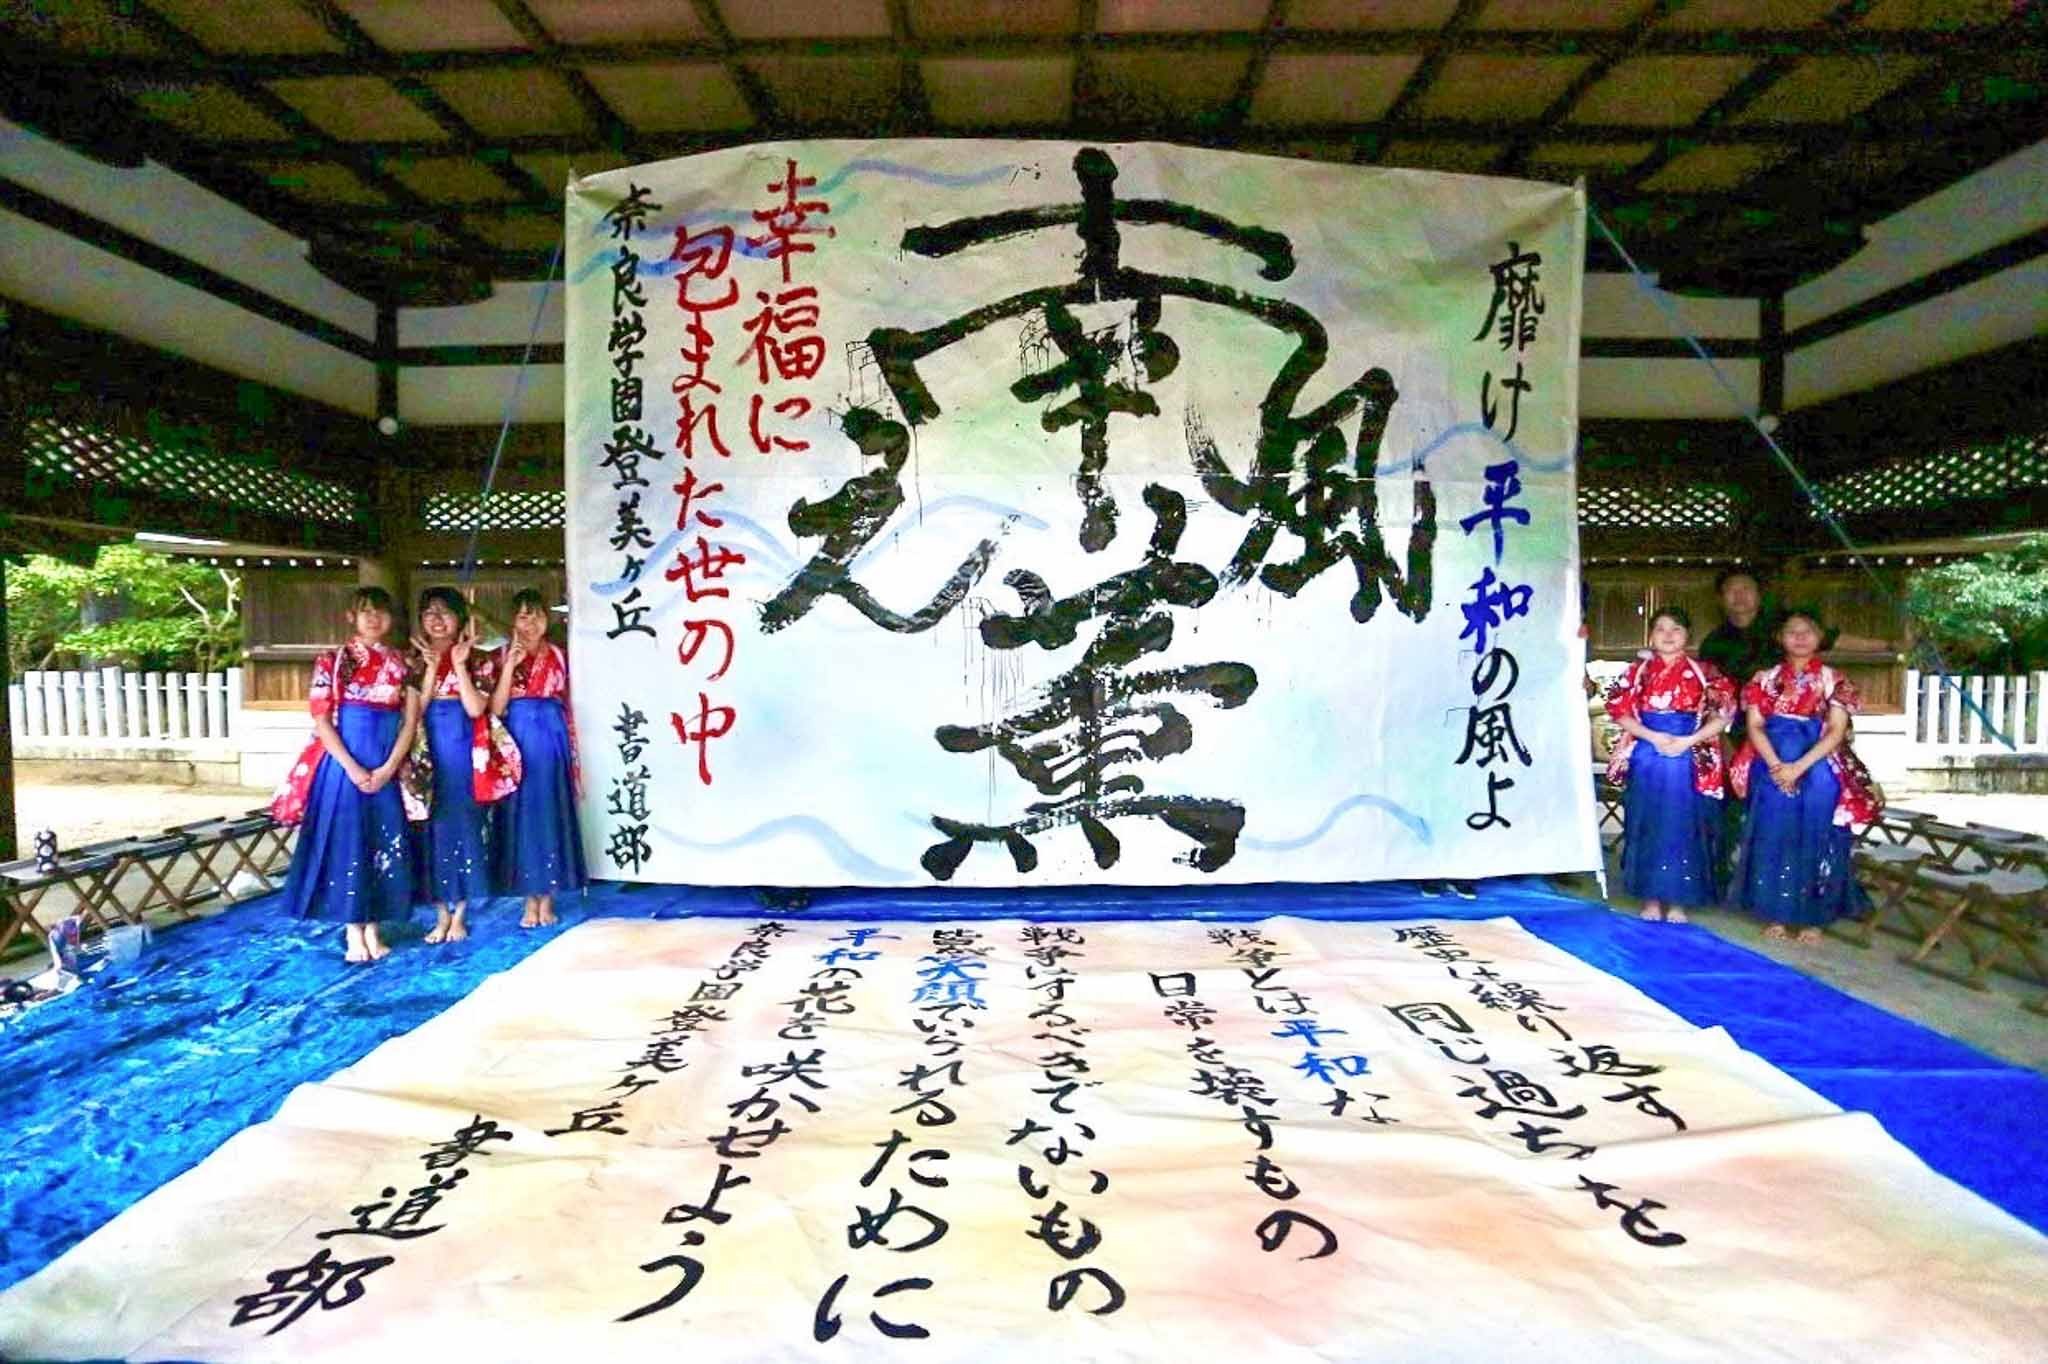 靡け平和の風よ
風
薫
幸福に
包まれた世の中
奈良学園登美ヶ丘 書道部
歴史は繰り返す
同じ過ちを
戦争とは平和な
日常を壊すもの
戦争はするべきでないもの
皆が笑顔でいられるために
平和の花を咲かせよう
奈良学園登美ヶ丘
書道部